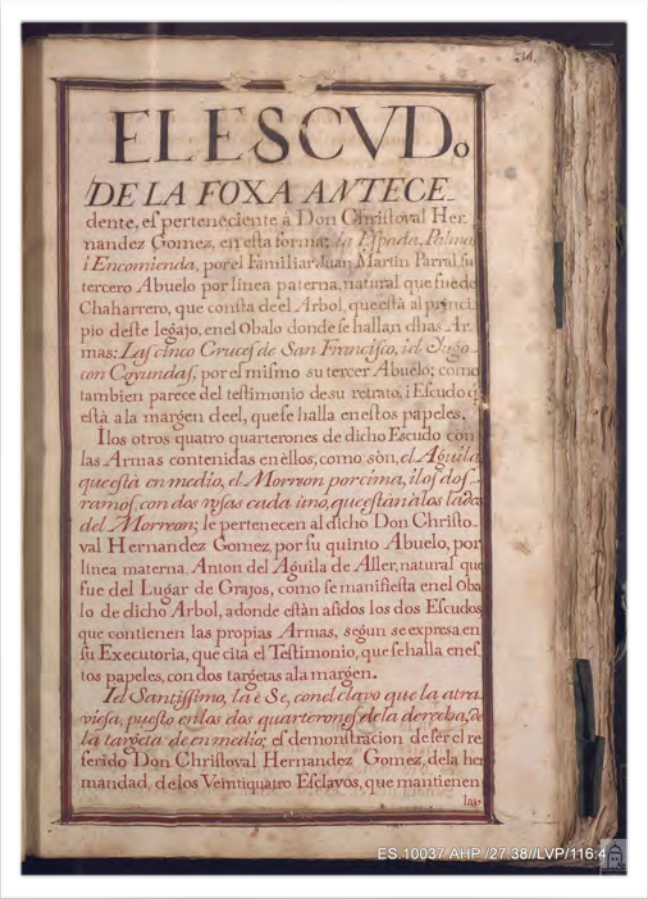 34.
ELESCVDo
DE LA FOXA ANTECE-
dente, eſ perteneciente à Don Chriſtoval Her-
nandez Gomez, en eſta forma: la Eſpada, Palma
i Encomienda, por el Familiar Juan Martin Parral, ſu
tercero Abuelo por linea paterna, natural que fue de
Chaharrero, que conſta de el Arbol, que eſtà al princi-
pio deſte legajo, en el Obalo donde ſe hallan dhas Ar-
mas: Laſ cinco Cruceſ de San Franciſco, i el Jugo
con Coyundaſ, por eſ miſmo su tercer Abuelo; como
tambien parece del teſtimonio de su retrato, i Eſcudo q̃
eſtà a la margen deel, que ſe halla en eſtos papeles.
I los otros quatro quarterones de dicho Eſcudo con
las Armas contenidas en èllos, como sòn, el Aguila
que eſtà en medio, el Morreon por cima, i loſ doſ
ramoſ, con dos roſas cada ùno, que eſtàn à los lados
del Morreon; le pertenecen al dicho Don Chriſto-
val Hernandez Gomez, por ſu quinto Abuelo, por
linea materna, Anton del Aguila de Aller, natural que
fue del Lugar de Grajos, como ſe manifieſta en el Oba
lo de dicho Arbol, adonde eſtàn aſidos los dos Eſcudos
que contienen las propias Armas, segun se expresa en
ſu Executoria, que cita el Teſtimonio, que ſe halla eneſ-
tos papeles, con dos targetas a la margen.
I el Santiſſimo, la è Se, con el clavo que la atra-
vieſa, pueſto en los dos quarteroneſ de la derecha, de
la targeta de en medio; eſ demonſtracion de ſer el re
ferido Don Chriſtoval Hernandez Gomez, de la her
mandad de los Veintiquatro Eſclavos, que mantienen
las
ES.10037.AHP/27.38//LVP/116:4